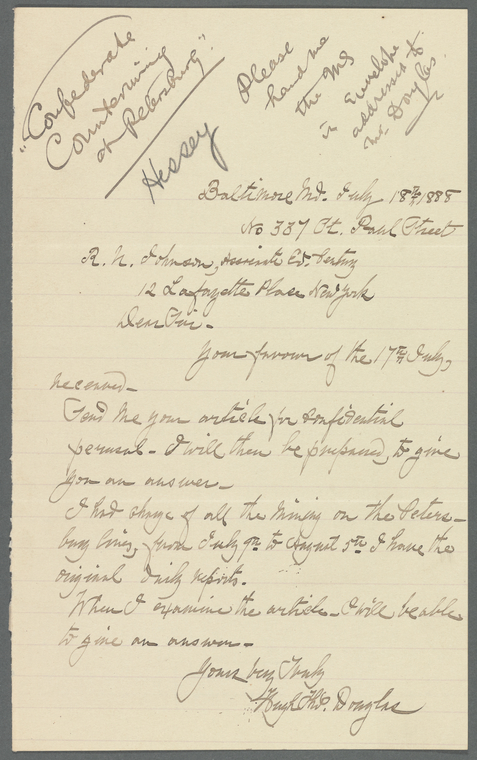 "Confederate
Countermining
at Petersburg".
Hessey
Please
hand me
the MS
in Envelope
addressed to
Mr. Douglas.
Baltimore Md. July 18th 1888
No 337 St. Paul Street
R. U. Johnson, Associate Ed. Century
12 Lafayette Place New York
Dear Sir -
Your favour of the 17th July,
received -
Send me your article for confidential
perusal - I will then be prepared, to give
you an answer -
I had charge of all the Mining on the Peters-
burg lines, from July 9th to August 5th I have the
original daily reports.
When I examine the article - I will be able
to give an answer -
Yours very Truly
Hugh Tho. Douglas